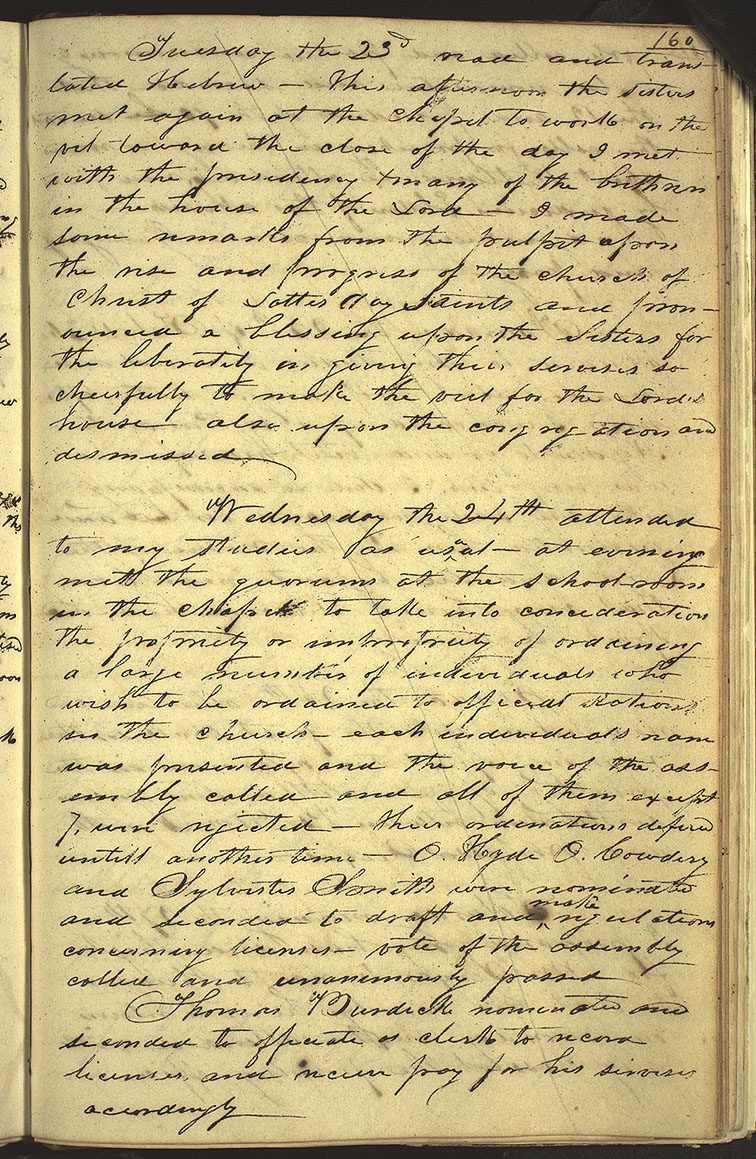 160
Tuesday the 23d read and trans
lated Hebrew — this afternoon the sisters
met again at the chapel to work on the
veil toward the close of the day I met
with the presidency & many of the brethren
in the house of the Lord — I made
some remarks from the pulpit upon
the rise and progress of the church of
Christ of Latter day Saints and pron-
ounced a blessing upon the Sisters for
the liberality in giving their servises so
cheerfully to make the veil for the Lord's
house also upon the congregation and
dismissed
Wednesday the 24th attended
to my studies as usual — at evening
met the quorums at the school-room
in the chapel to take into concideration
the propriety or impropriety of ordaining
a large number of individuals who
wish to be ordained to official stations
in the church — each individual's name
was presented and the voice of the ass-
embly called and all of them except
7, were rejected — their ordinations defered
untill another time — O. Hyde O. Cowdery
and Sylvester Smith were nominated
and seconded to draft and make regulations
concerning licenses — vote of the assembly
called and unanimously passed
Thomas Burdick nominated and
seconded to officiate as clerk to record
licenses, and receive pay for his servises
acordingly